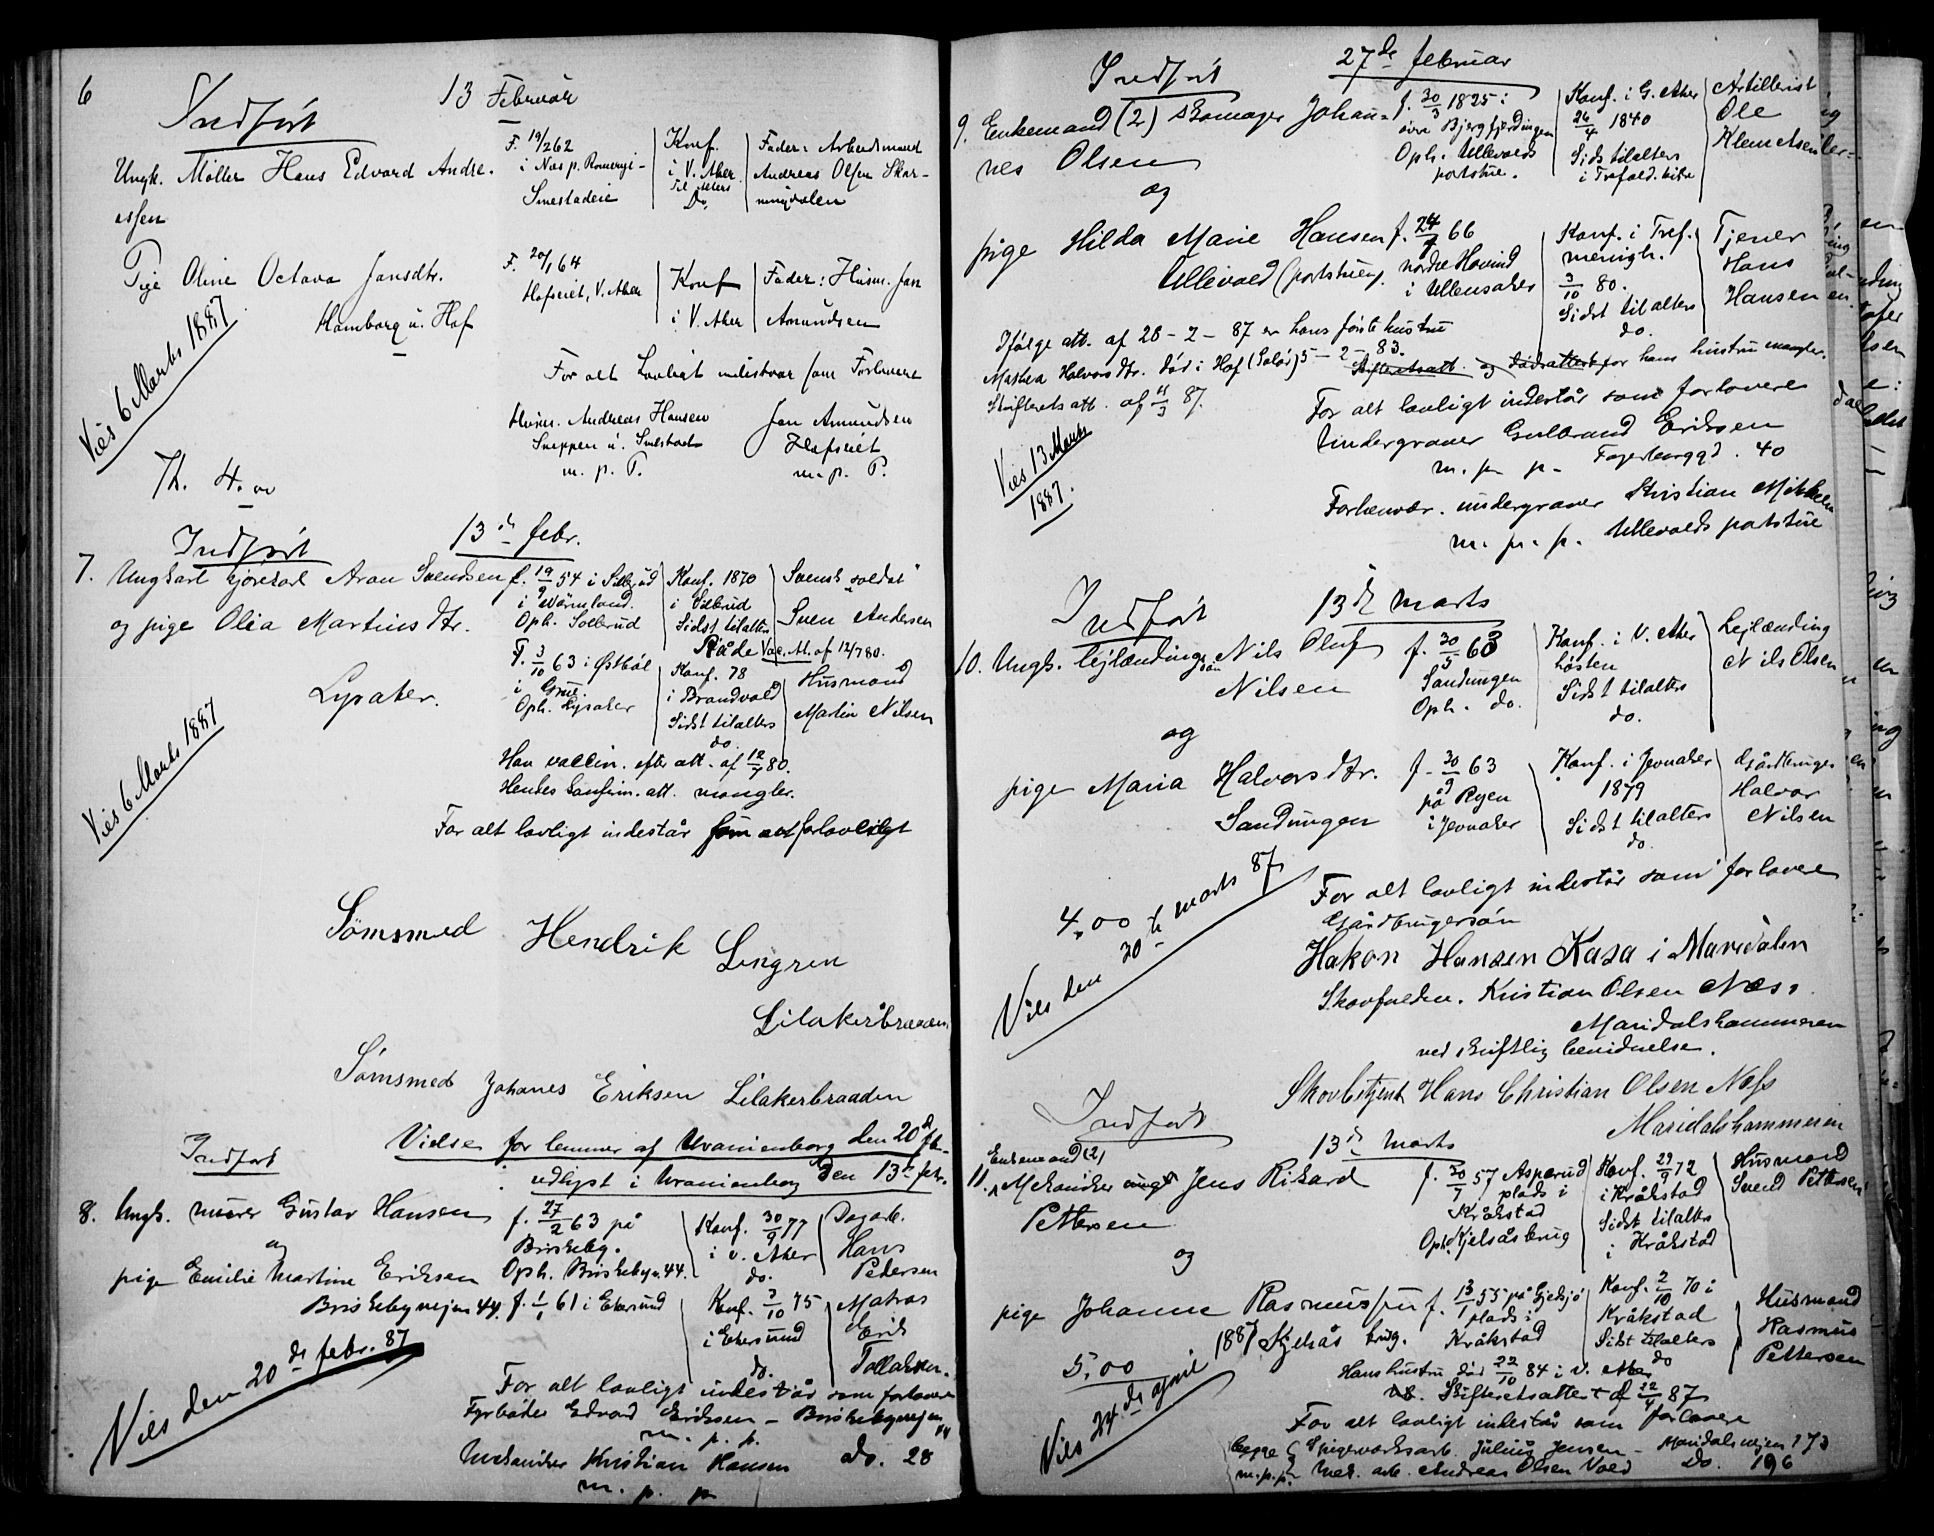 6
Indført
13 Februar
Ungk. Møller Hans Edvard Andre-
assen
F. 19/2 62
i Næs p. Romerige
Smestadeie
Konf.
i V. Aker
Til Alters
Do.
Fader: Arbeidsmand
Andreas Olsen Skar-
ningdalen
Pige Oline Octava Jansdtr.
Homborg u. Hof
F. 20/1 64
Hofseiet, V. Aker
Konf
i V. Aker
Fader: Husm. Jan
Amundsen
Vies 6 Marts 1887
For alt Lovligt indestaar som Forlovere
Husm. Andreas Hansen
Sneppen u. Smestad
m. p. P.
Jan Amundsen
Hofseiet
m. p. P.
Th. 4.00
Indført
13de febr.
7. Ungkarl kjørekarl Aron Svendsen
og pige Olia Martinsdtr.
Lysaker.
f. 19/9 54 i
i Wärmland.
Oph. Sollerud
Konf. 1870
i
Sidst tilalters
Råde Vac. att. af 12/7 80.
Svensk "soldat"
Sven Andersen
F. 3/10 63 i
i Grue.
Oph. Lysaker
Konf. 78
i Brandvold
Sidst tilalters
do.
Husmand
Martin Nilsen
Vies 6 Marts 1887
Han vaccin. efter att. af 12/7 80.
Hendes Konfirm. att. mangler.
For alt lovligt indestår som
Sømsmed Hendrik Lingren
Lilakerbraaden
Sømsmed Johanes Eriksen Lilakerbraaden
Vielse for lemmer af Uranienborg den 20d feb-
Indført
udlyst i Uranienborg den 13d febr.
8. Ungk. murer Gustav Hansen
og
pige Emilie Martine Eriksen
Briskebyvejen 44.
f. 27/2 63 på
Briskeby.
Oph. Briskebyv. 44.
Konf. 30/9 77
i v. Aker
do.
Dagarb.
Hans
Pedersen
f. 1/1 61 i Ekersund
Konf. 3/10 75
i Ekersund
do.
Matros
Erik
Tollaksen.
Vies den 20de febr. 87
For alt lovligt indestår som forlovere
Fyrbøder Edvard Eriksen - Briskebyvejen 44
m. p. p.
Mekaniker Kristian Hansen do. 28
m. p. p
Indført
27de februar
9. Enkemand (2) skomager Johan-
nes Olsen
og
f. 30/3 1825 i
øvre Bjergfjerdingen
Oph. Ullevolds
portstue.
Konf. i G. Aker
26/4 1840
Sidst tilalters
i Trefold. kirke
Artillerist
Ole
Klemetsen
pige Hilda Marie Hansen
Ullevold (portstuen).
f. 24/7 66
nordre Hovind
i Ullensaker
Konf. i Tref.
menigh.
3/10 80.
Sidst tilalters
do.
Tjener
Hans
Hansen
Ifølge att. af 28 - 2 - 87 er hans første hustru
Mathea Halvorsdtr. død i Hof (Solør) 5 - 2 - 83.
Skifteretsatt. og dødsattest for hans hustru mangler.
Skifterets att. af 11/3 87.
Vies 13 Marts
1887.
For alt lovligt indestår som forlovere
Undergraver Gulbrand Eriksen
m. p. p. Fagerborggd. 40
Forhenvær. undergraver Kristian Mikkelsen
m. p. p. Ullevolds portstue
Indført
13de marts
10. Ungk. lejlændingssøn Nils Oluf
Nilsen
og
f. 30/5 63
Sandungen
Oph. do.
Konf. i V. Aker
høsten
Sidst tilalters
do.
Lejlænding
Nils Olsen
pige Maria Halvorsdtr.
Sandungen
f. 30/9 63
på Ryen
i Jevnaker
Konf. i Jevnaker
1879
Sidst tilalters
do
Gårdbruger
Halvor
Nilsen
4.00
Vies den 30te marts 87
For alt lovligt indestår som forlovere
Gårdbrugersøn
Hakon Hansen Kasa i Maridalen
Skovfulden. Kristian Olsen Næss.
Maridalshammeren
ved skriftlig bevidnelse.
Skovbetjent Hans Christian Olsen Næss
Maridalshammeren
Indført
13de marts
Enkemand (2)
11. Mekaniker ungk Jens Rikard
Pettersen
og
f. 30/7 57 Asperud
plads i
Kråkstad
Oph. Kjelsåsbrug
Konf. 29/9 72
i Kråkstad
Sidst tilalters
i Kråkstad
Husmand
Svend Pettersen
pige Johanne Rasmussen
Kjelsås brug.
f. 13/1 55 på Gjedsjø
plads i
Kråkstad
Konf. 2/10 70 i
Kråkstad
Sidst tilalters
do
Husmand
Rasmus
Pettersen
5.00
Vies 24de april 1887
Hans hustru død 22/10 84 i v. Aker
Skifteretsattest af 22/4 87
For alt lovligt indestår som forlovere
begge
m.p.p.
Spigerværksarb. Julius Jensen - Maridalsvejen 173
Mek. arb. Andreas Olsen Vold do. 196